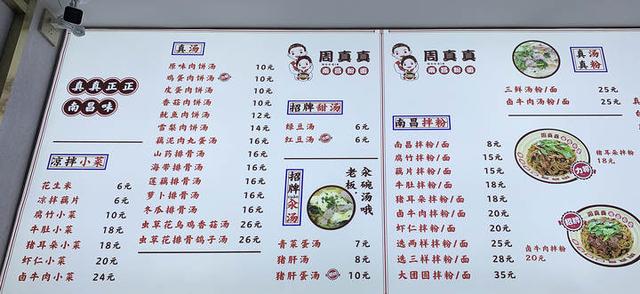 真真正正
南昌味
凉拌小菜
花生米 6元
凉拌藕片 6元
腐竹小菜 10元
牛肚小菜 18元
猪耳朵小菜 18元
虾仁小菜 20元
卤牛肉小菜 24元
真汤
原味肉饼汤 10元
鸡蛋肉饼汤 10元
皮蛋肉饼汤 10元
香菇肉饼汤 10元
鱿鱼肉饼汤 12元
雪梨肉饼汤 14元
藕泥肉丸蛋汤 16元
山药排骨汤 16元
海带排骨汤 16元
莲藕排骨汤 16元
萝卜排骨汤 16元
冬瓜排骨汤 16元
虫草花乌鸡香菇汤 26元
虫草花排骨鸽子汤 26元
周真真
南昌粉面
招牌甜汤
绿豆汤 6元
红豆汤 6元
招牌汆汤
老板,汆碗汤哦
青菜蛋汤 7元
猪肝汤 8元
猪肝蛋汤 10元
周真真
南昌粉面
南昌拌粉
南昌拌粉/面 8元
腐竹拌粉/面 15元
藕片拌粉/面 15元
牛肚拌粉/面 18元
猪耳朵拌粉/面 18元
卤牛肉拌粉/面 20元
虾仁拌粉/面 20元
选两样拌粉/面 25元
选三样拌粉/面 28元
大团圆拌粉/面 35元
真汤真粉
三鲜汤粉/面 25元
卤牛肉汤粉/面 25元
周真真
猪耳朵拌粉
18元
周真真
招牌
卤牛肉拌粉
20元